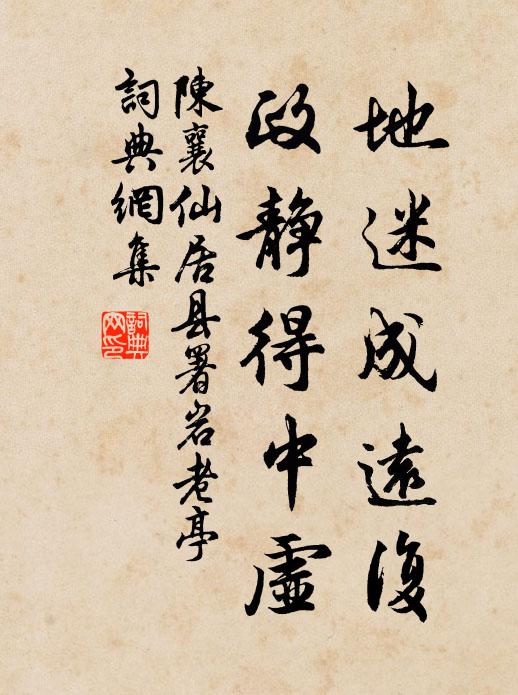 地迷成遠復
政静得中虛
陳襄仙居县署岩老亭
詞典網集
詞典網印